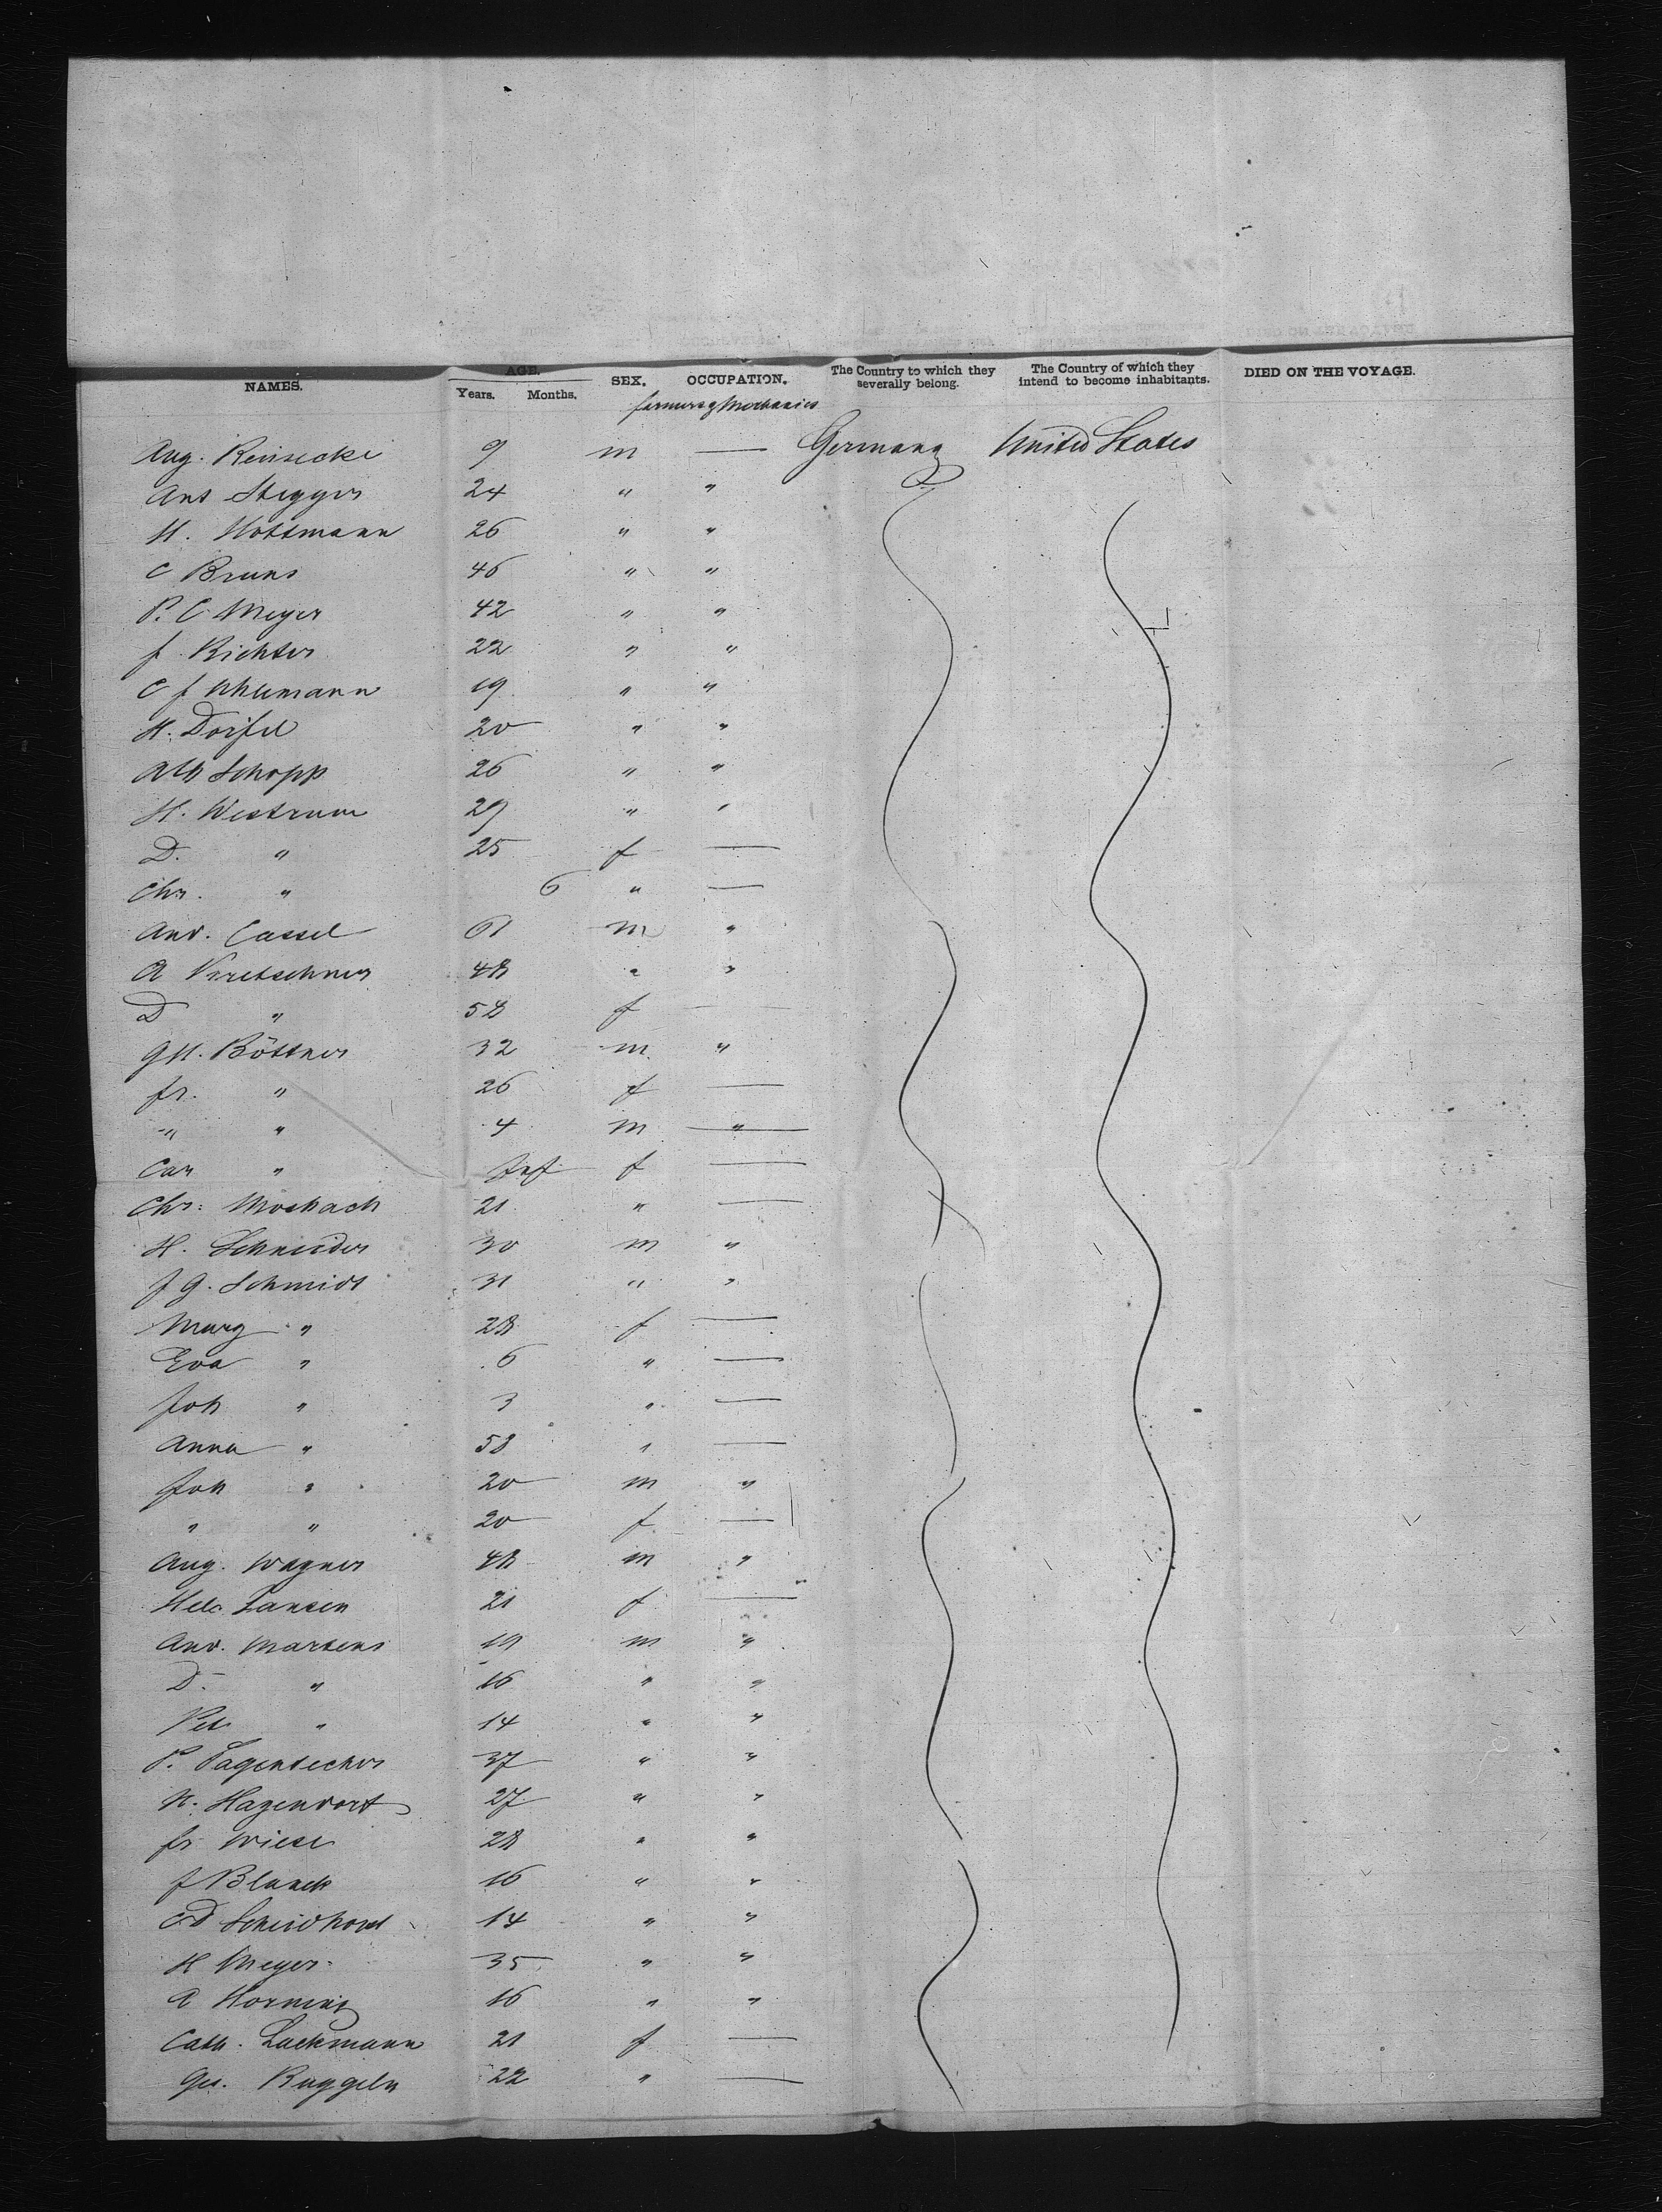 NAMES. AGE. SEX. OCCUPATION. The Country to which they severally belong. The Country of which they intend to become inhabitants. DIED ON THE VOYAGE.
Years. Months.
farmers & Mechanics
Aug. Reinecke 9 m — Germany United States
Ant Stegger 24 " "
H. Hottmann 26 " "
C Bruns 46 " "
P. C Meyer 42 " "
f. Richter 22 " "
C f 19 " "
H. Dorfel 20 " "
Ath Schopp 26 " "
H. Westrum 29 " "
D. " 25 f —
Chr. " 6 " —
And. Cassel 61 m "
A Kretschmer 48 " "
D " 58 f —
GH. Böttner 32 m "
fr. " 26 f —
" " 4 m "
Car " Inf f —
Chr: Mosbach 21 " —
H. Schneider 30 m "
J G. Schmidt 31 " "
Marg " 28 f —
Eva " 6 " —
Joh " 3 " —
Anna " 58 " —
Joh " 20 m "
" " 20 f —
Aug. Wagner 48 m "
Hele Jansen 21 f —
And. Martens 19 m "
D. " 16 " "
Pet " 14 " "
P. Pagenstecher 37 " "
H. Hagendorf 27 " "
fr. Wiese 28 " "
f Blanck 16 " "
14 " "
H Meyer 35 " "
A Horning 16 " "
Cath. Lackmann 21 f —
Ges. Ruggeln 22 " —